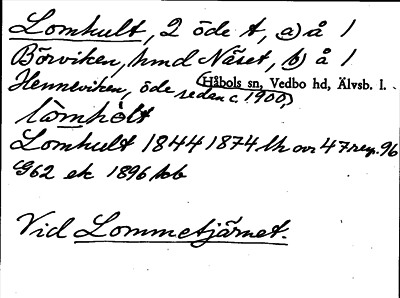 Lomhult, 2 öde t, a) å 1
Börviken, hmd Näset, b) å 1
Henneviken, öde sedan c. 1900,)
(Håbols sn, Vedbo hd, Älvsb. l.
lòmhòlt
Lomhult 1844 1874 lk 47 96
G62 ek 1896 kb
Vid Lommetjärnet.